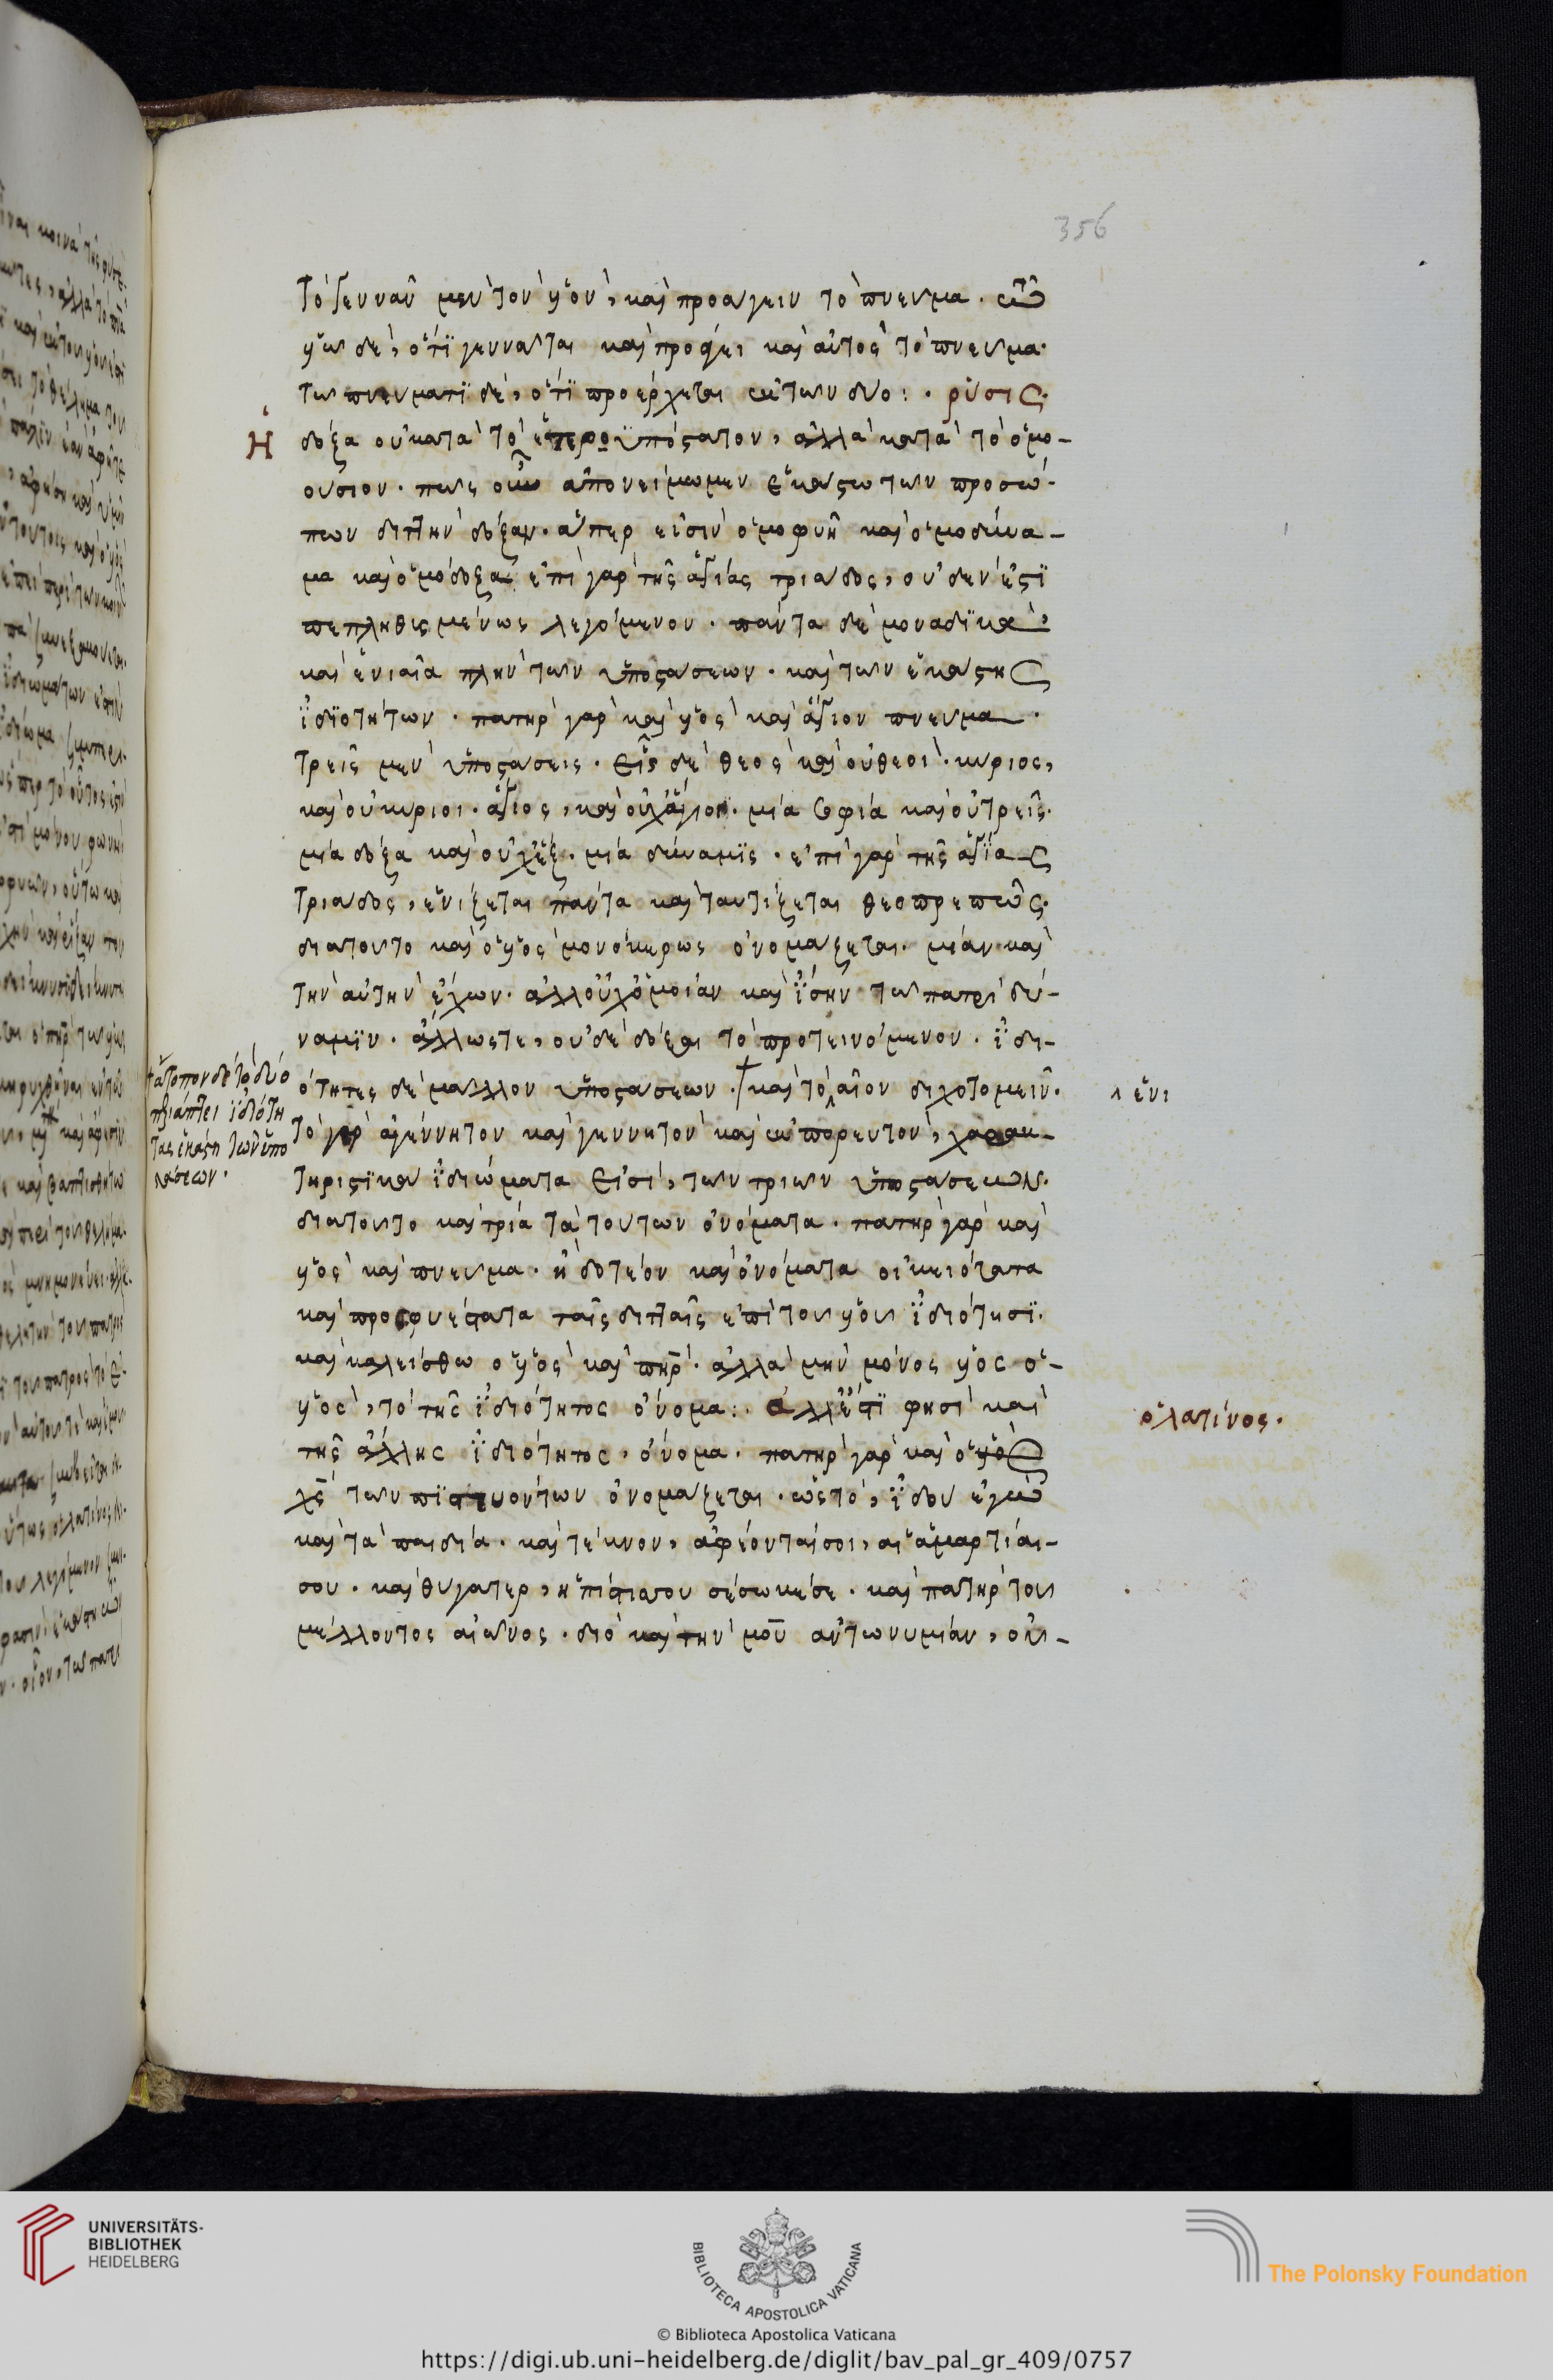 356
τὸ γεννᾶν μὲν τὸν υἱὸν, καὶ προάγειν τὸ πνεῦμα. τῶ
υἱῶ δὲ, ὅτι γεννᾶται καὶ προφέρει καὶ αὐτὸς τὸ πνεῦμα.
τῶ πνεύματι δὲ, ὅτι προέρχεται ἐκ τῶν δύο:. ρύσις.
Ἡ δόξα οὐ κατὰ τὸ ἑτεροϋπόστατον, ἀλλὰ κατὰ τὸ ὁμο-
ούσιον. πῶς οὖν ἀπονείμωμεν ἑκάστω τῶν προσώ-
πων διπλὴν δόξαν. ἅπερ εἰσὶν ὁμοφυῆ καὶ ὁμοδύνα-
μα καὶ ὁμόδοξα. ἐπὶ γὰρ τῆς ἁγίας τριάδος, οὐδέν ἐστι
πεπληθυσμένως λεγόμενον. πάντα δὲ μοναδικὰ,
καὶ ἑνιαῖα πλὴν τῶν ὑποστάσεων. καὶ τῶν ἑκάστης
ἰδιοτήτων. πατὴρ γὰρ καὶ υἱὸς καὶ ἅγιον πνεῦμα.
τρεῖς μὲν ὑποστάσεις. εἷς δὲ θεὸς καὶ οὐ θεοί. κύριος,
καὶ οὐ κύριοι. ἅγιος, καὶ οὐχ ἅγιοι. μία σοφία καὶ οὐ τρεῖς.
μία δόξα καὶ οὐχ ἕξ. μία δύναμις. ἐπὶ γὰρ τῆς ἁγίας
τριάδος, ἑνίζεται πάντα καὶ ταυτίζεται θεοπρεπῶς.
διατοῦτο καὶ ὁ υἱὸς μονόκερως ὀνομάζεται. μίαν καὶ
τὴν αὐτὴν ἔχων. ἀλλ οὐχ ὁμοίαν καὶ ἴσην τῶ πατρὶ δύ-
ναμιν. ἄλλωστε, οὐδὲ δόξαι τὸ προτεινόμενον. ἰδι-
ότητες δὲ μᾶλλον ὑποστάσεων. καὶ τὸ αῖον διχοτομεῖν.
ἑνι
ἄτοπον δὲ τὸ δύο
προσάπτειν ἰδιότη
τας ἑκάστη τῶν ὑπο
στάσεων.
τὸ γὰρ ἀγέννητον καὶ γεννητὸν καὶ ἐκπορευτὸν, χαρακ-
τηριστικὰ ἰδιώματα εἰσὶ, τῶν τριῶν ὑποστάσεων.
διατοῦτο καὶ τρία τὰ τούτων ὀνόματα. πατὴρ γὰρ καὶ
υἱὸς καὶ πνεῦμα. ἢ δοτέον καὶ ὀνόματα οἰκειότατα
καὶ προσφυέστατα ταῖς διπλαῖς ἐπὶ τοῦ υἱοῦ ἰδιότησι.
καὶ καλείσθω ὁ υἱὸς καὶ πηρ. ἀλλὰ μὴν μόνος υἱὸς ὁ
υἱὸς, τὸ τῆς ἰδιότητος ὄνομα:. ἀλλ ἔστι φησὶ καὶ
ὁ λατίνος.
τῆς ἄλλης ἰδιότητος, ὄνομα. πατὴρ γὰρ καὶ ὁ υἱὸς
χς τῶν πιστευόντων ὀνομάζεται. ὡς τὸ, ἰδοὺ ἐγὼ
καὶ τὰ παιδία. καὶ τέκνον, ἀφέονταί σοι, αἱ ἁμαρτίαι-
σου. καὶ θύγατερ, ἡ πίστις σου σέσωκέ σε. καὶ πατὴρ τοῦ
μέλλοντος αἰῶνος. διὸ καὶ τὴν μοῦ ἀντωνυμίαν, οὐ-
UNIVERSITÄTS-
BIBLIOTHEK
HEIDELBERG
BIBLIOTECA APOSTOLICA VATICANA
The Polonsky Foundation
© Biblioteca Apostolica Vaticana
https://digi.ub.uni-heidelberg.de/diglit/bav_pal_gr_409/0757